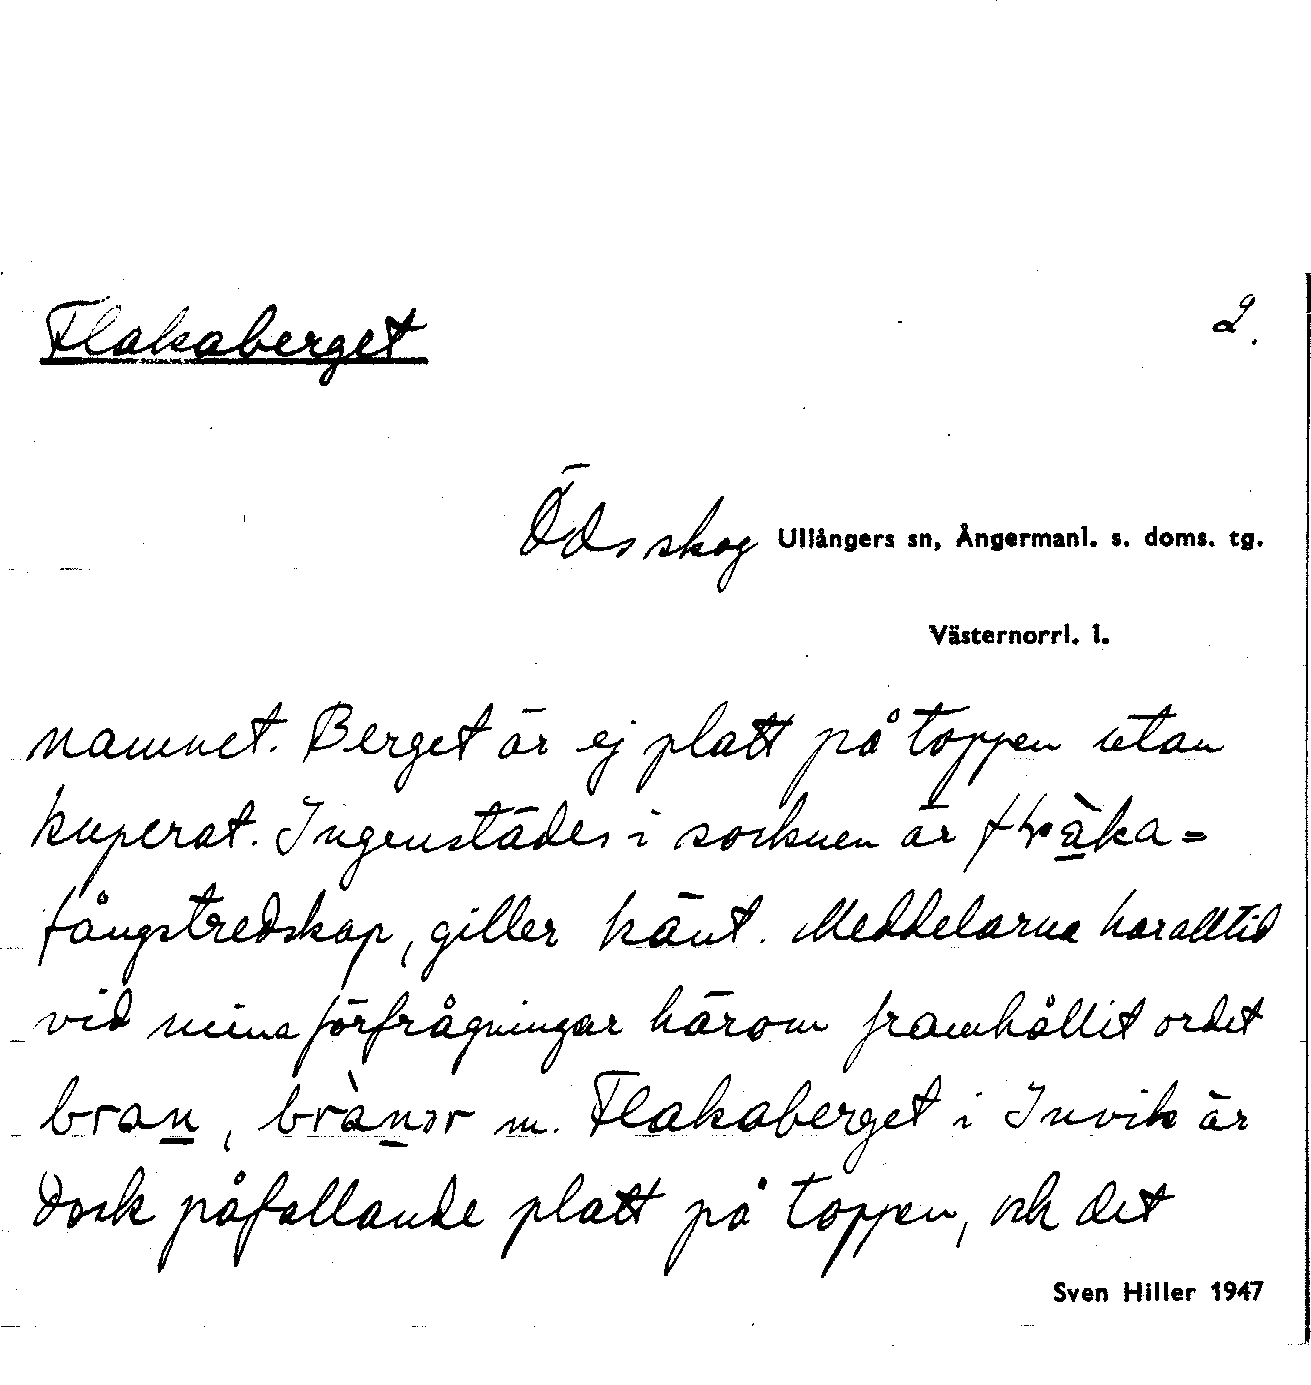 Flakaberget 2.
Öds skog Ullångers sn, Ångermanl. s. doms. tg.
Västernorrl. l.
namnet. Berget är ej platt på toppen utan
kuperat. Ingenstädes i socknen är
fångstredskap, giller känt. Meddelarna har alltid
vid mina förfrågningar härom framhållit ordet
bran, brànər m. Flakaberget i Invik är
dock påfallande platt på toppen, och det
Sven Hiller 1947